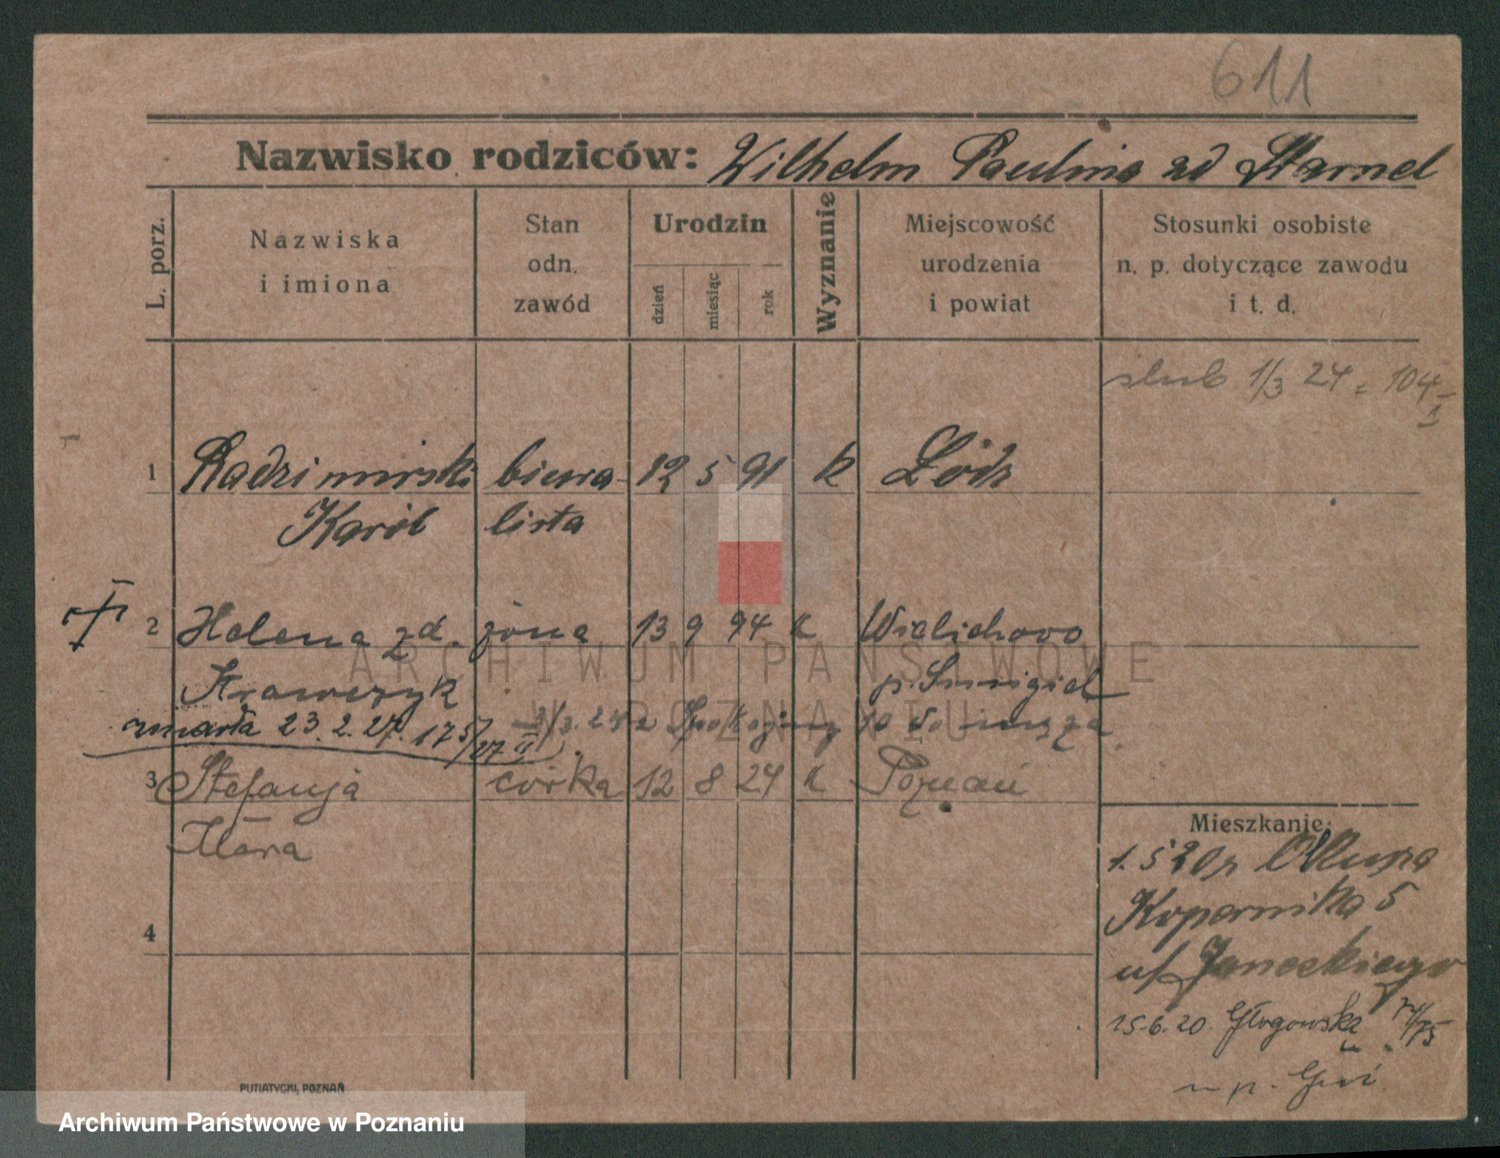 611
Nazwisko rodziców: Wilhelm Paulina zd Starnel
L. porz.
Nazwiska i imiona
Stan odn. zawód
Urodzin
dzień
miesiąc
rok
Wyznanie
Miejscowość urodzenia i powiat
Stosunki osobiste n. p. dotyczące zawodu i t. d.
ślub 1/3 24 = 104
1 Radzimirski biura- 12 5 91 k Łódz
Karól lista
2 Helena zd. żona 13 9 94 k Wielichowo
Krawczyk p. Smigiel
zmarła 23.2.27. 175/27 II 3/3.24 z 10 do męża
3 Stefanja córka 12 8 24 k Poznań
Klara
4
Mieszkanie:
1. 5 20
Kopernika 5
u/ Janeckiego
15.6.20. Głogowska 74/75
PUTIATYCKI, POZNAŃ
ARCHIWUM PAŃSTWOWE
W POZNANIU
Archiwum Państwowe w Poznaniu